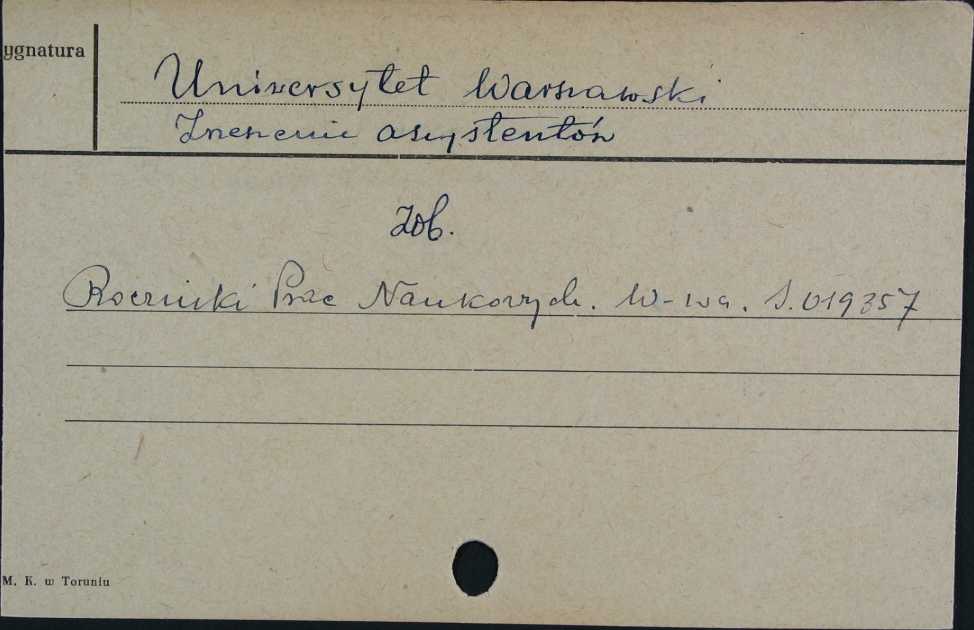 ygnatura
Uniwersytet Warszawski
Zrzeszenie asystentów
Zob.
Roczniki Prac Naukowych. W-wa. S.019357
M. K. w Toruniu